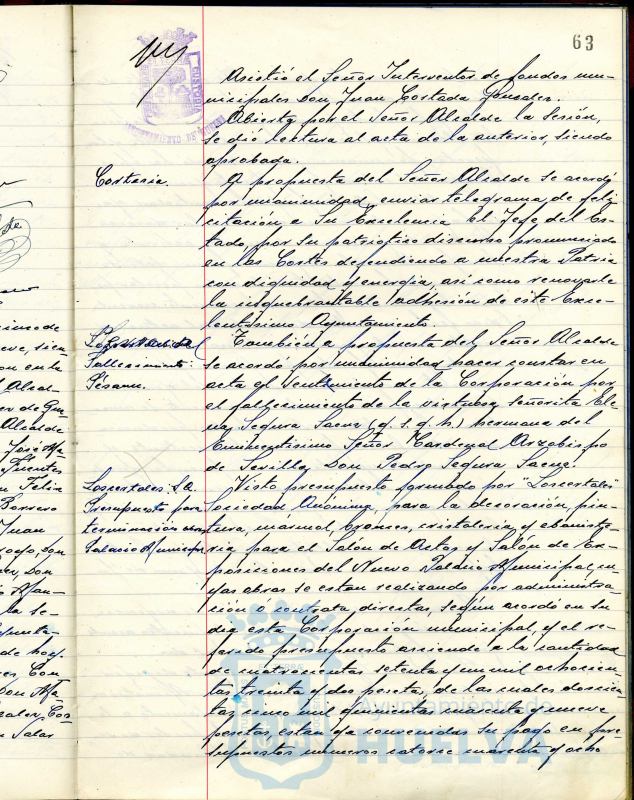 63
Asistió el Señor Interventor de fondos mu-
nicipales Don Juan Cortada Gonzalez.
Abierta por el Señor Alcalde la Sesión,
se dió lectura al acta de la anterior, siendo
aprobada.
Cortesia.
A propuesta del Señor Alcalde se acordó
por unanimidad, enviar telegrama, de feli-
citación a Su Excelencia el Jefe del Es-
tado, por su patriotico discurso pronunciado
en las Cortes defendiendo a nuestra Patria
con dignidad y energia, asi como renovarle
la inquebrantable adhesión de este Exce-
lentisimo Ayuntamiento.
Fallecimiento.
Pésame.
También a propuesta del Señor Alcalde
se acordó por unanimidad hacer constar en
acta el sentimiento de la Corporación por
el fallecimiento de la virtuosa señorita Ele-
na Segura Saenz (q. s. g. h) hermana del
Eminentisimo Señor Cardenal Arzobispo
de Sevilla Don Pedro Segura Saenz.
Loscertales S.A
Presupuesto para
terminación obras
Palacio Municipal
Visto presupuesto formado por "Loscertales"
Sociedad Anónima, para la decoración, pin-
tura, marmol, bronces, cristaleria y ebaniste-
ria para el Salón de Actos y Salón de Ex-
posiciones del Nuevo Palacio Municipal, cu-
yas obras se estan realizando por administra-
ción ó contrata directas, según acordó en su
dia esta Corporación municipal, y el re-
ferido presupuesto asciende a la cantidad
de cuatrocientas setenta y un mil ochocien-
tas treinta y dos pesetas, de las cuales doscien-
tas cinco mil quinientas cuarenta y nueve
pesetas, estan ya convenidas su pago en pre-
supuestos numeros catorce cuarenta y ocho
CUSTODIA
AYUNTAMIENTO DE
Ayuntamiento de
HUELVA